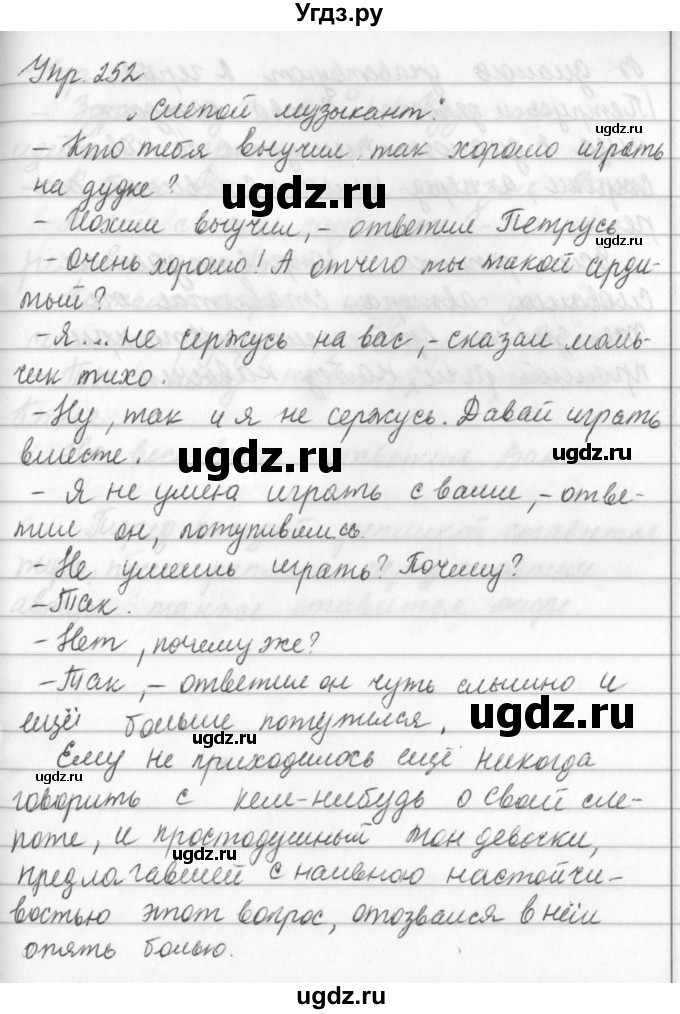 Угдз.ру
Упр. 252
„Слепой музыкант".
– Кто тебя выучил так хорошо играть
на дудке?
– Иохим выучил, – ответил Петрусь.
– Очень хорошо! А отчего ты такой серди-
тый?
– Я... не сержусь на вас, – сказал маль-
чик тихо.
– Ну, так и я не сержусь. Давай играть
вместе.
– Я не умею играть с вами, – отве-
тил он, потупившись.
– Не умеешь играть? Почему?
– Так.
– Нет, почему же?
– Так, – ответил он чуть слышно и
ещё больше потупился.
Ему не приходилось ещё никогда
говорить с кем-нибудь о своей сле-
поте, и простодушный тон девочки,
предлагавшей с наивною настойчи-
востью этот вопрос, отозвался в нём
опять болью.
ugdz.ru
ugdz.ru
ugdz.ru
ugdz.ru
ugdz.ru
ugdz.ru
ugdz.ru
ugdz.ru
ugdz.ru
ugdz.ru
ugdz.ru
ugdz.ru
ugdz.ru